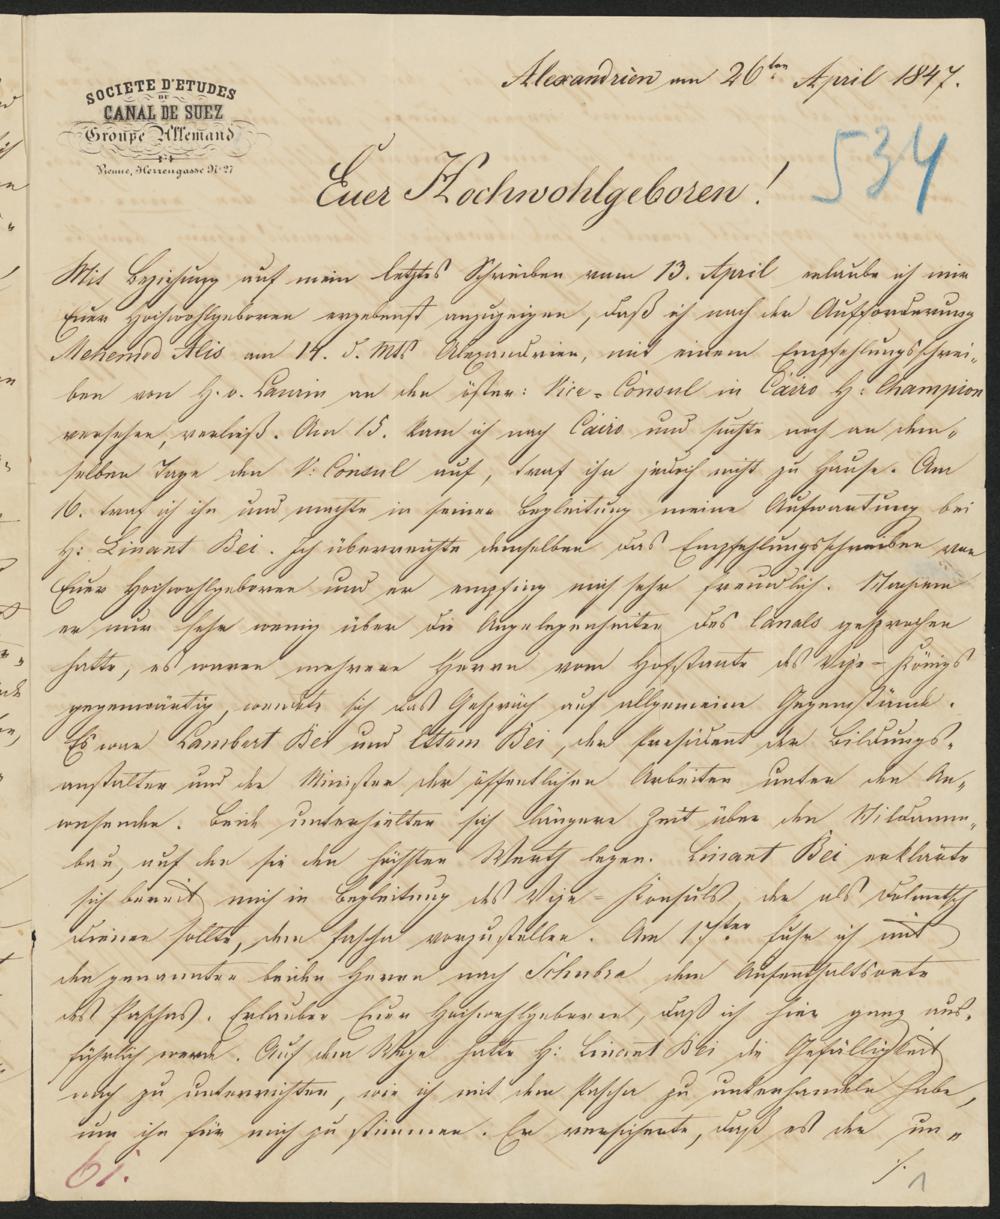 SOCIETE D'ETUDES
DU
CANAL DE SUEZ
Groupe Allemand
Vienne, Herrengasse No 27
Alexandrien am 26ten April 1847.
534
Euer Hochwohlgeboren!
Mit Beziehung auf mein letztes Schreiben vom 13. April erlaube ich mir
Euer Hochwohlgeboren ergebenst anzuzeigen, daß ich nach der Aufforderung
Mehemed Alis am 14. d. Mts Alexandrien, mit einem Empfehlungsschrei-
ben von H. v. Laurin an den öster: Vice-Consul in Cairo H: Champion
versehen, verließ. Am 15. kam ich nach Cairo und suchte noch an dem-
selben Tage den V: Consul auf, traf ihn jedoch nicht zu Hause. Am
16. traf ich ihn und machte in seiner Begleitung meine Aufwartung bei
H: Linant Bei. Ich überreichte demselben das Empfehlungsschreiben von
Euer Hochwohlgeboren und er empfing mich sehr freundlich. Nachdem
er nur sehr wenig über die Angelegenheiten des Canals gesprochen
hatte, es waren mehrere Herren vom Hofstaate des Vize-Königs
gegenwärtig, wendete sich das Gespräch auf allgemeine Gegenstände.
Es war Lambert Bei und Ettem Bei, der Präsident der Bildungs-
anstalten und der Minister der öffentlichen Arbeiten unter den An-
wesenden. Beide unterhielten sich längere Zeit über den Nildamm-
bau, auf den sie den höchsten Werth legen. Linant Bei erklärte
sich bereit mich in Begleitung des Vize-Konsuls, der als Dolmetsch
dienen sollte, dem Pascha vorzustellen. Am 17ten fuhr ich mit
den genannten beiden Herrn nach Schubra dem Aufenthaltsorte
des Paschas. Erlauben Euer Hochwohlgeboren, daß ich hier ganz aus-
führlich werde. Auf dem Wege hatte H: Linant Bei die Gefälligkeit
mich zu unterrichten, wie ich mit dem Pascha zu unterhandeln habe,
um ihn für mich zu stimmen. Er versicherte, daß es der un-
61.
1